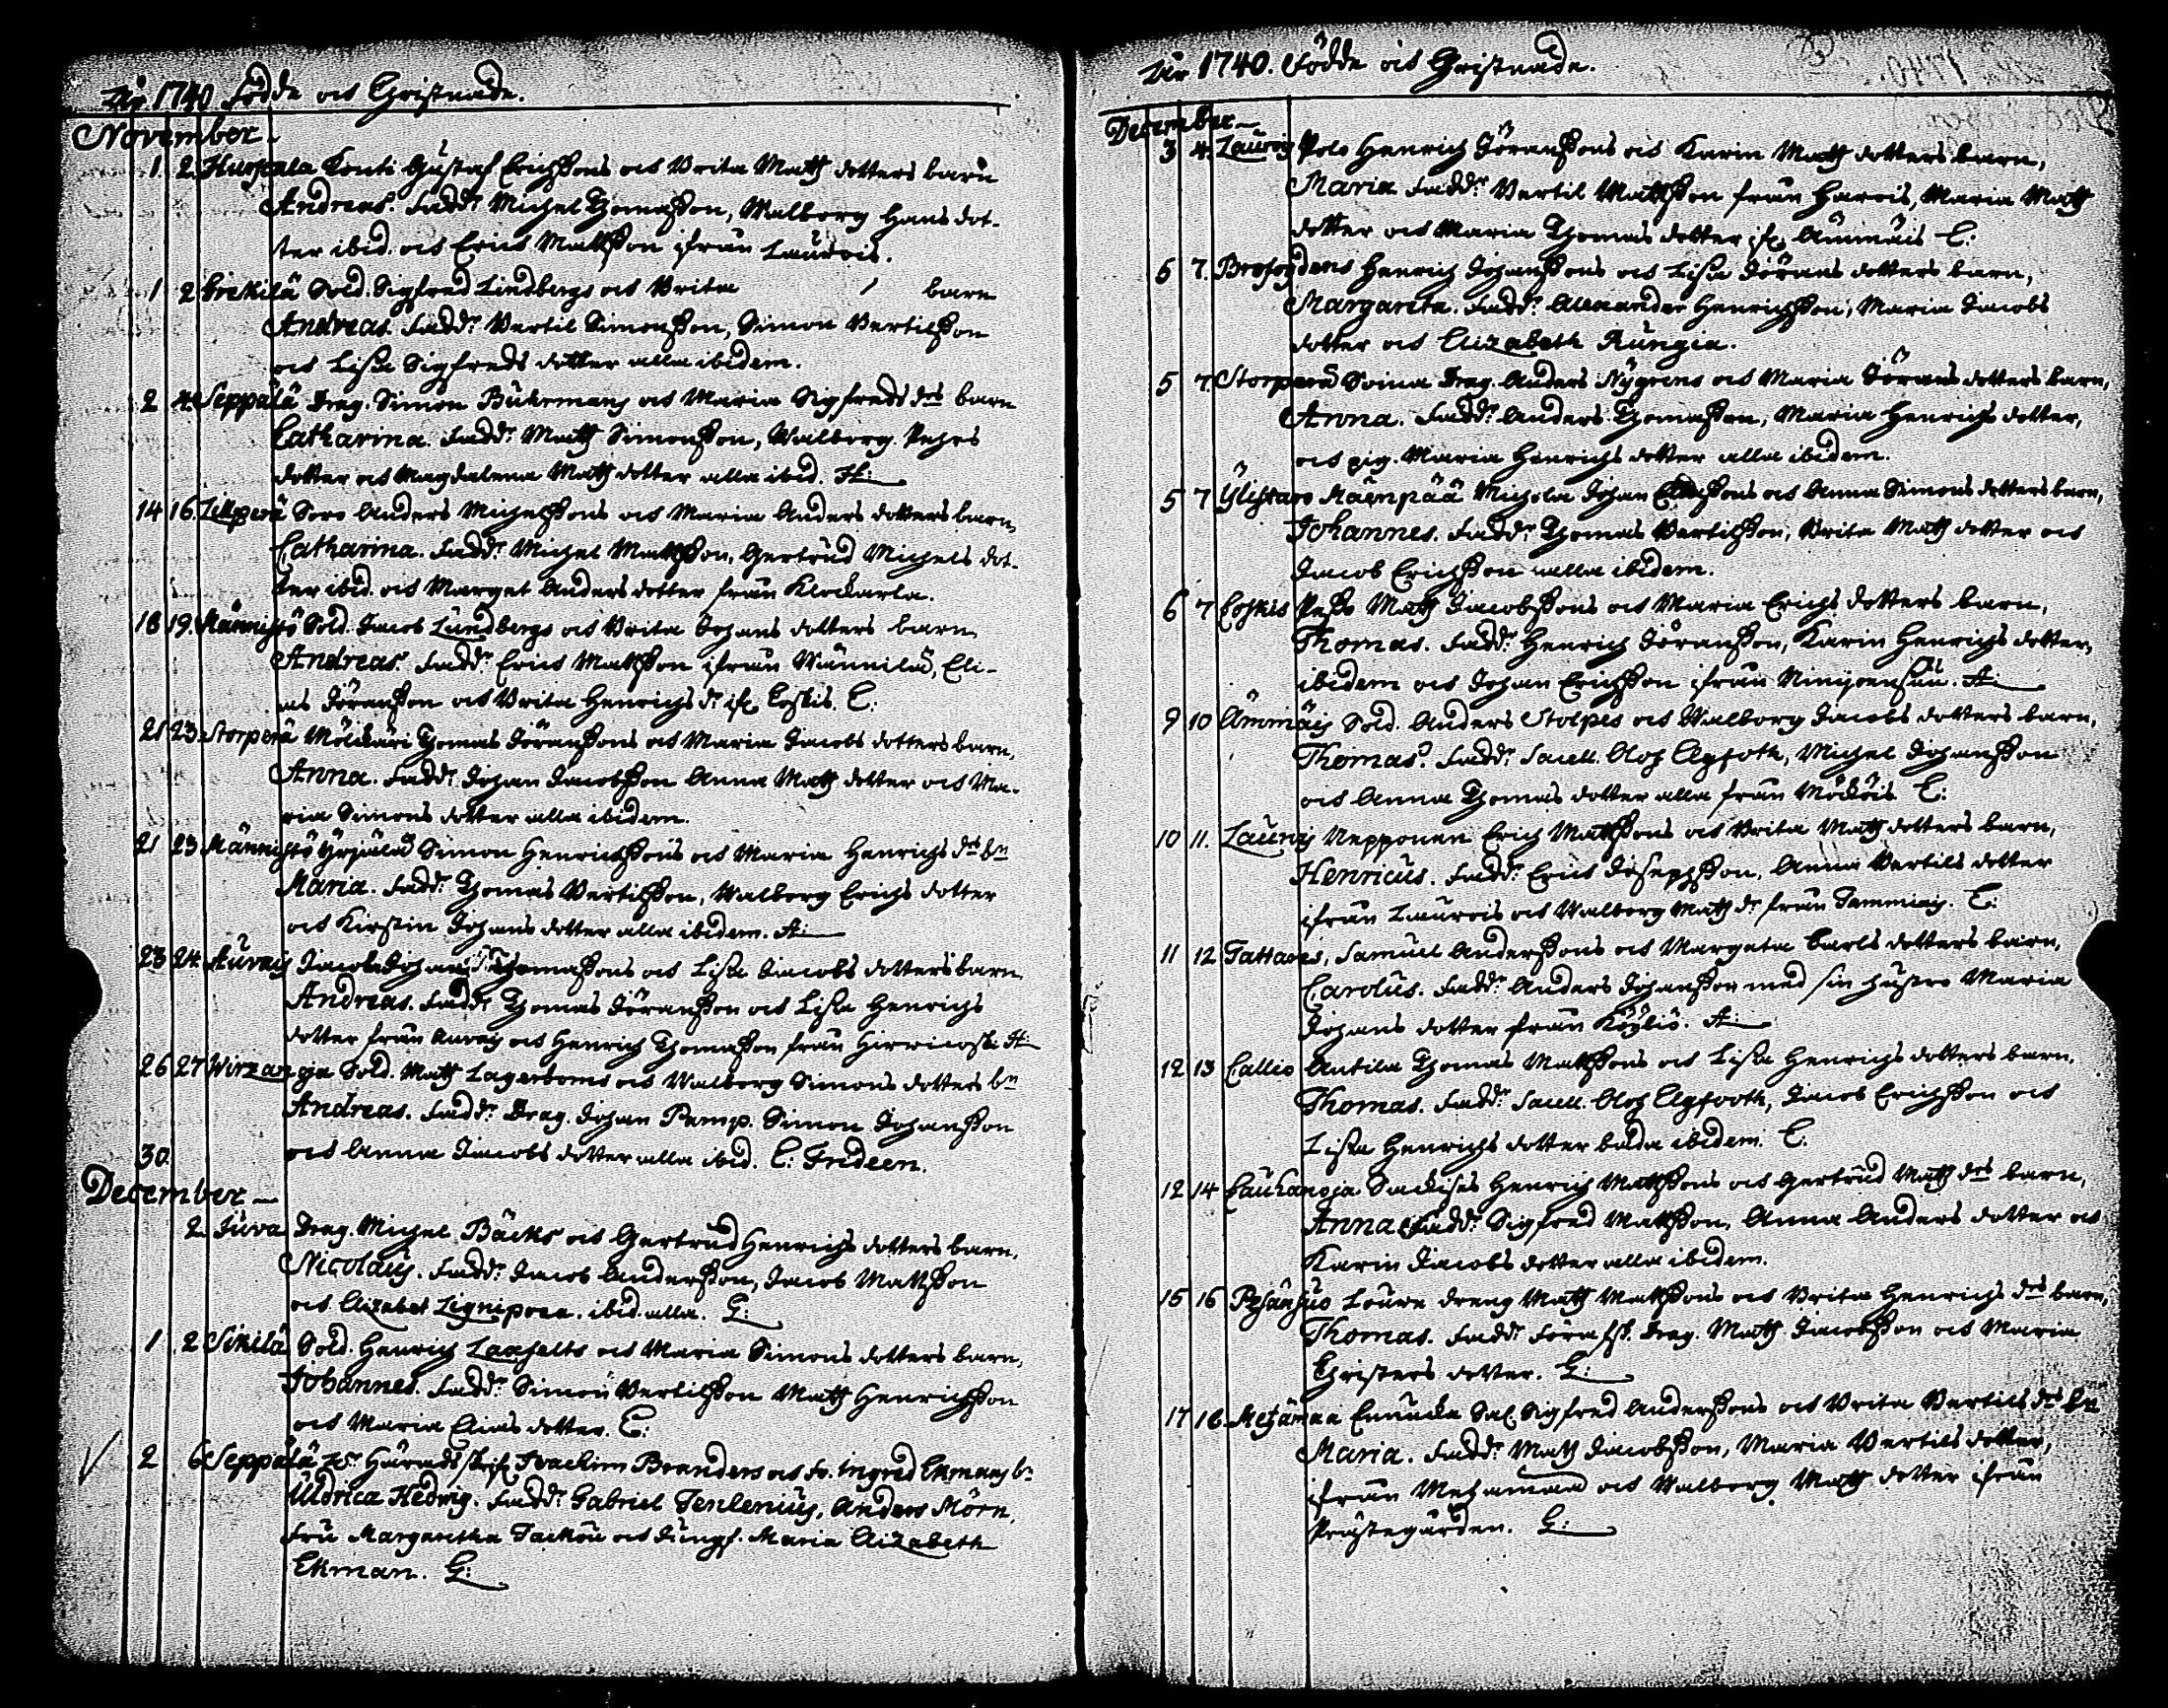 År 1740 Födde och Christnade.
November
1 2 Huhtala Konti Gustaf Erichssons och Brita Matts dotters barn
Andreas. Fadd: Michel Thomasson, Walborg Hans dot-
ter ibid. och Erich Mattsson ifrån Laurois.
1 2 Grekilä Sold. Sigfred Lindbergs och Brita barn
Andreas. Fadd: Bertil Simonsson, Simon Bertilsson
och Lisa Sigfreds dotter alla ibidem.
2 4 Seppälä Drag. Simon Buhrmans och Maria Sigfreds drs barn
Catharina. Fadd: Matts Simonsson, Walborg Pehrs
dotter och Magdalena Matts dotter alla ibid. H:
14 16. Lillperä Soro Anders Michelssons och Maria Anders dotters barn
Catharina. Fadd: Michel Mattsson, Gertrud Michels dot-
ter ibid. och Marget Anders dotter från Klockarla.
18 19. Männistö Sold. Jacob Lundbergs och Brita Johans dotters barn
Andreas. Fadd: Erich Mattsson ifrån Wännilä, Eli-
as Jöransson och Brita Henrichs dr if. Coskis. C:
21 23 Storperä Möickäri Thomas Jöranssons och Maria Jacobs dotters barn,
Anna. Fadd: Johan Jacobsson Anna Matts dotter och Ma-
ria Simons dotter alla ibidem.
21 23 Männistö Yrjälä Simon Henrichssons och Maria Henrichs drs bn
Maria. Fadd: Thomas Bertilsson, Walborg Erichs dotter
och Kirstin Johans dotter alla ibidem. A:
23 24 Auvais Thomassons och Lisa Jacobs dotters barn
Andreas. Fadd: Thomas Jöransson och Lisa Henrichs
dotter från Auvais och Henrich Thomasson från Hirvicoski H:
26 27 Wirzanoja Sold. Matts Lagerboms och Walborg Simons dotters bn
Andreas. Fadd: Drag. Johan Pamp. Simon Johansson
30. och Anna Jacobs dotter alla ibid. C: Frideen.
December
2. Juva Drag. Michel Bäcks och Gertrud Henrichs dotters barn,
Nicolaus. Fadd: Jacob Andersson, Jacob Mattsson
och Elizabet Lignipoea. ibid. alla. G:
1 2 Sikilä Sold. Henrich Laxhelts och Maria Simons dotters barn,
Johannes. Fadd: Simon Bertilsson Matts Henrichsson
och Maria Elias dotter. C:
2 6 Seppälä Hr Häradsskrif. Joachim Branders och Fr. Ingred Ekmans bn
Uldrica Hedwig. Fadd: Gabriel Tenlenius, Anders Mörn,
Fru Margaretha Tackou och Jungf. Maria Elizabeth
Ekman. G:
År 1740. Födde och Christnade.
December
3 4. Laurois Polo Henrich Jöranssons och Karin Matts dotters barn,
Maria Fadd: Bertil Mattsson från Harois, Maria Matts
dotter och Maria Thomas dotter if. Ämmäis C:
5 7. Brofogdens Henrich Johanssons och Lisa Jörans dotters barn,
Margareta. Fadd: Alexander Henrichsson, Maria Jacobs
dotter och Elizabeth Rungia.
5 7. Storperä Soina Drag. Anders Nygrens och Maria Jörans dotters barn,
Anna. Fadd: Anders Thomasson, Maria Henrichs dotter,
och pig. Maria Henrichs dotter alla ibidem.
5 7 Ylistaro Mäenpää Michola Johan Erichssons och Anna Simons dotters barn,
Johannes. Fadd: Thomas Bertilsson, Brita Matts dotter och
Jacob Erichsson alla ibidem.
6 7 Coskis Pesso Matts Jacobssons och Maria Erichs dotters barn,
Thomas. Fadd: Henrich Jöransson, Karin Henrichs dotter,
ibidem och Johan Erichsson ifrån. A:
9 10 Ämmäis Sold. Anders Stolpes och Walborg Jacobs dotters barn,
Thomas. Fadd: Sacell. Olof Elgfoth, Michel Johansson
och Anna Thomas dotter alla från Möckois C:
10 11. Laurois Nepponen Erich Mattssons och Brita Matts dotters barn,
Henricus. Fadd: Erich Josephsson, Anna Bertils dotter
ifrån Laurois och Walborg Matts dr från Tammiais. C:
11 12 Tattares, Samuel Anderssons och Margeta Carls dotters barn,
Carolus. Fadd: Anders Johansson med sin hustro Maria
Johans dotter från Köyliö. A:
12 13 Callio Antila Thomas Mattssons och Lisa Henrichs dotters barn,
Thomas. Fadd: Sacell. Olof Elgfooth, Jacob Erichsson och
Lisa Henrichs dotter båda ibidem. C.
12 14 Cauhanoja Sackises Henrich Mattssons och Gertrud Matts drs barn,
Anna Fadd: Sigfred Mattsson, Anna Anders dotter och
Karin Jacobs dotter alla ibidem.
15 16 Pesänsuo Louve dreng Matts Mattssons och Brita Henrichs drs barn,
Thomas. Fadd: Drag. Matts Jacobsson och Maria
Christers dotter. G:
17 18 Metsämaa Sigfred Anderssons och Brita Bertils drs bn
Maria. Fadd: Matts Jacobsson, Maria Bertils dotter,
ifrån Metsämaa och Walborg Matts dotter ifrån
Prästegården. G: